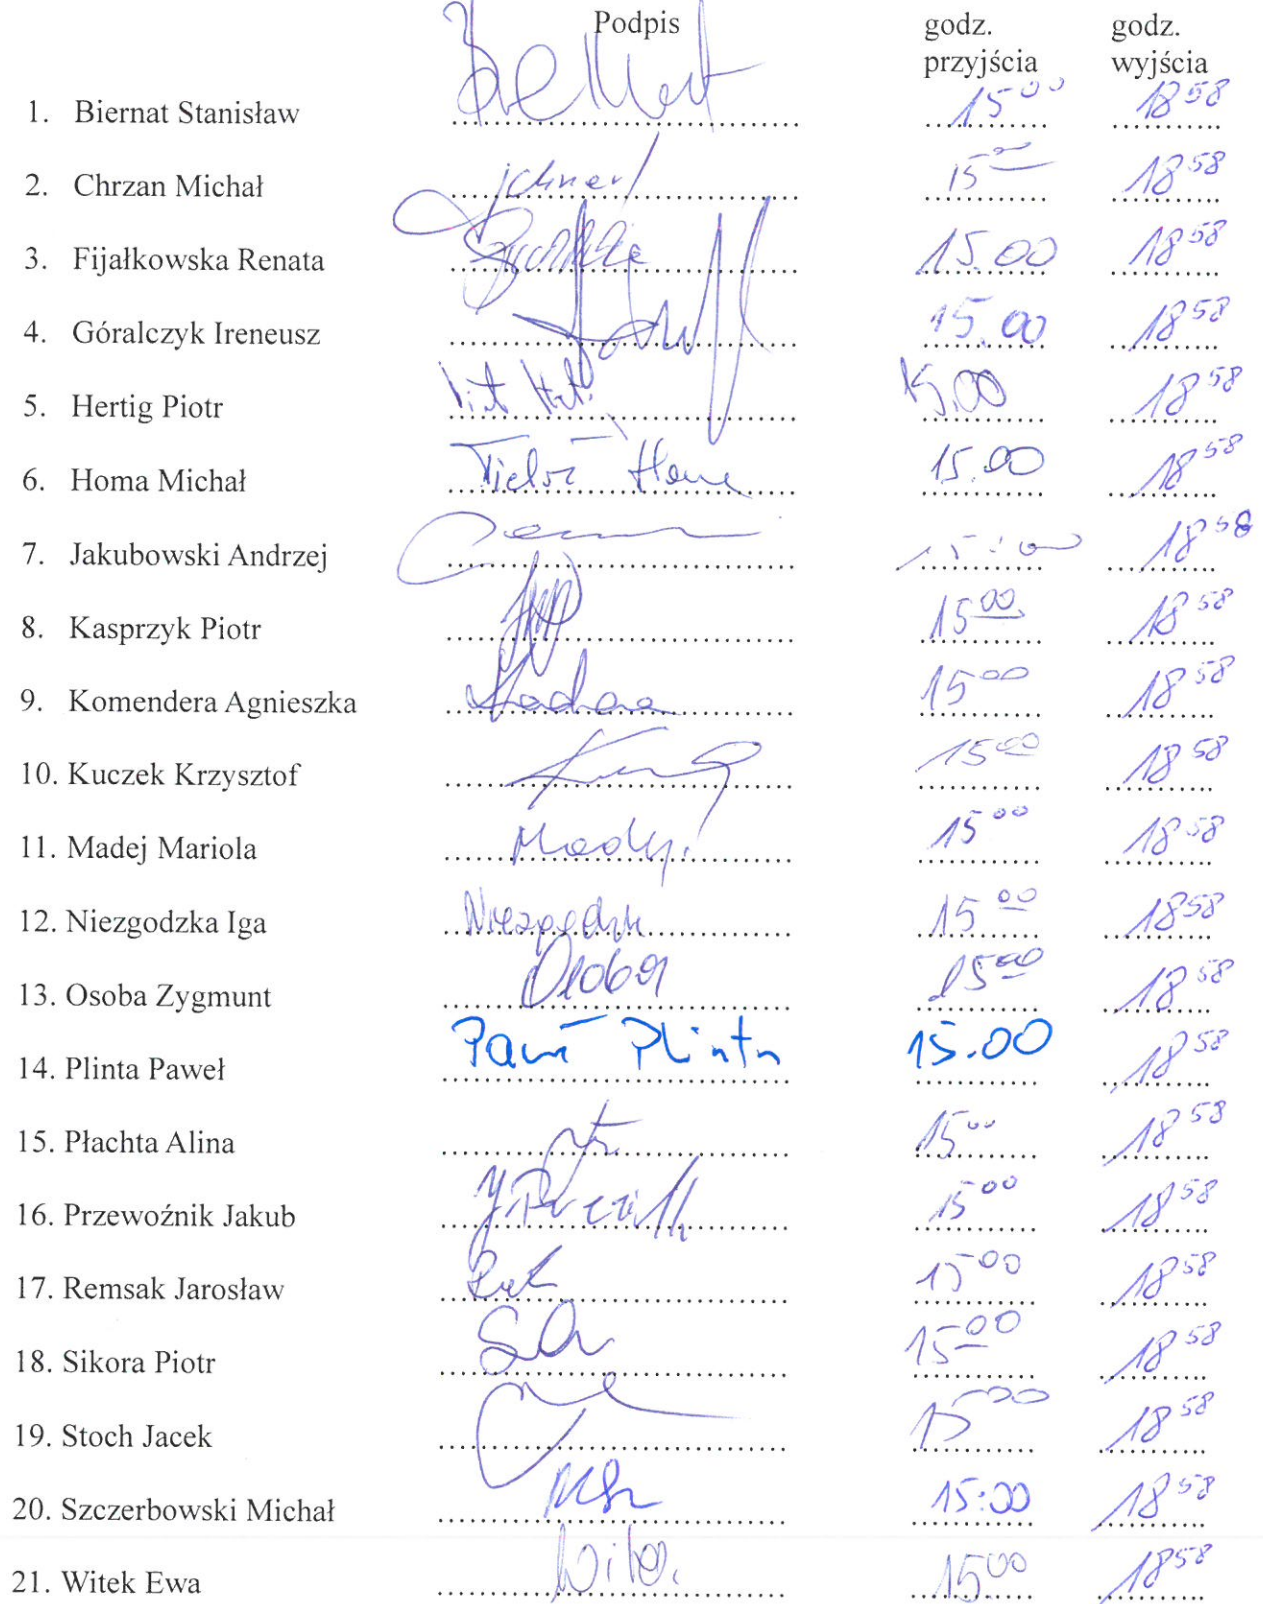 Podpis godz. przyjścia godz. wyjścia
1. Biernat Stanisław 15 00 18 58
2. Chrzan Michał 15 00 18 58
3. Fijałkowska Renata 15.00 18 58
4. Góralczyk Ireneusz 15.00 18 58
5. Hertig Piotr 15.00 18 58
6. Homa Michał 15.00 18 58
7. Jakubowski Andrzej 15:00 18 58
8. Kasprzyk Piotr 15 00 18 58
9. Komendera Agnieszka 15 00 18 58
10. Kuczek Krzysztof 15 00 18 58
11. Madej Mariola Madej 15 00 18 58
12. Niezgodzka Iga 15 00 18 58
13. Osoba Zygmunt Osoba 15 00 18 58
14. Plinta Paweł Paweł Plinta 15.00 18 58
15. Płachta Alina 15 00 18 58
16. Przewoźnik Jakub 15 00 18 58
17. Remsak Jarosław 15 00 18 58
18. Sikora Piotr 15 00 18 58
19. Stoch Jacek 15 00 18 58
20. Szczerbowski Michał 15:00 18 58
21. Witek Ewa 15 00 18 58